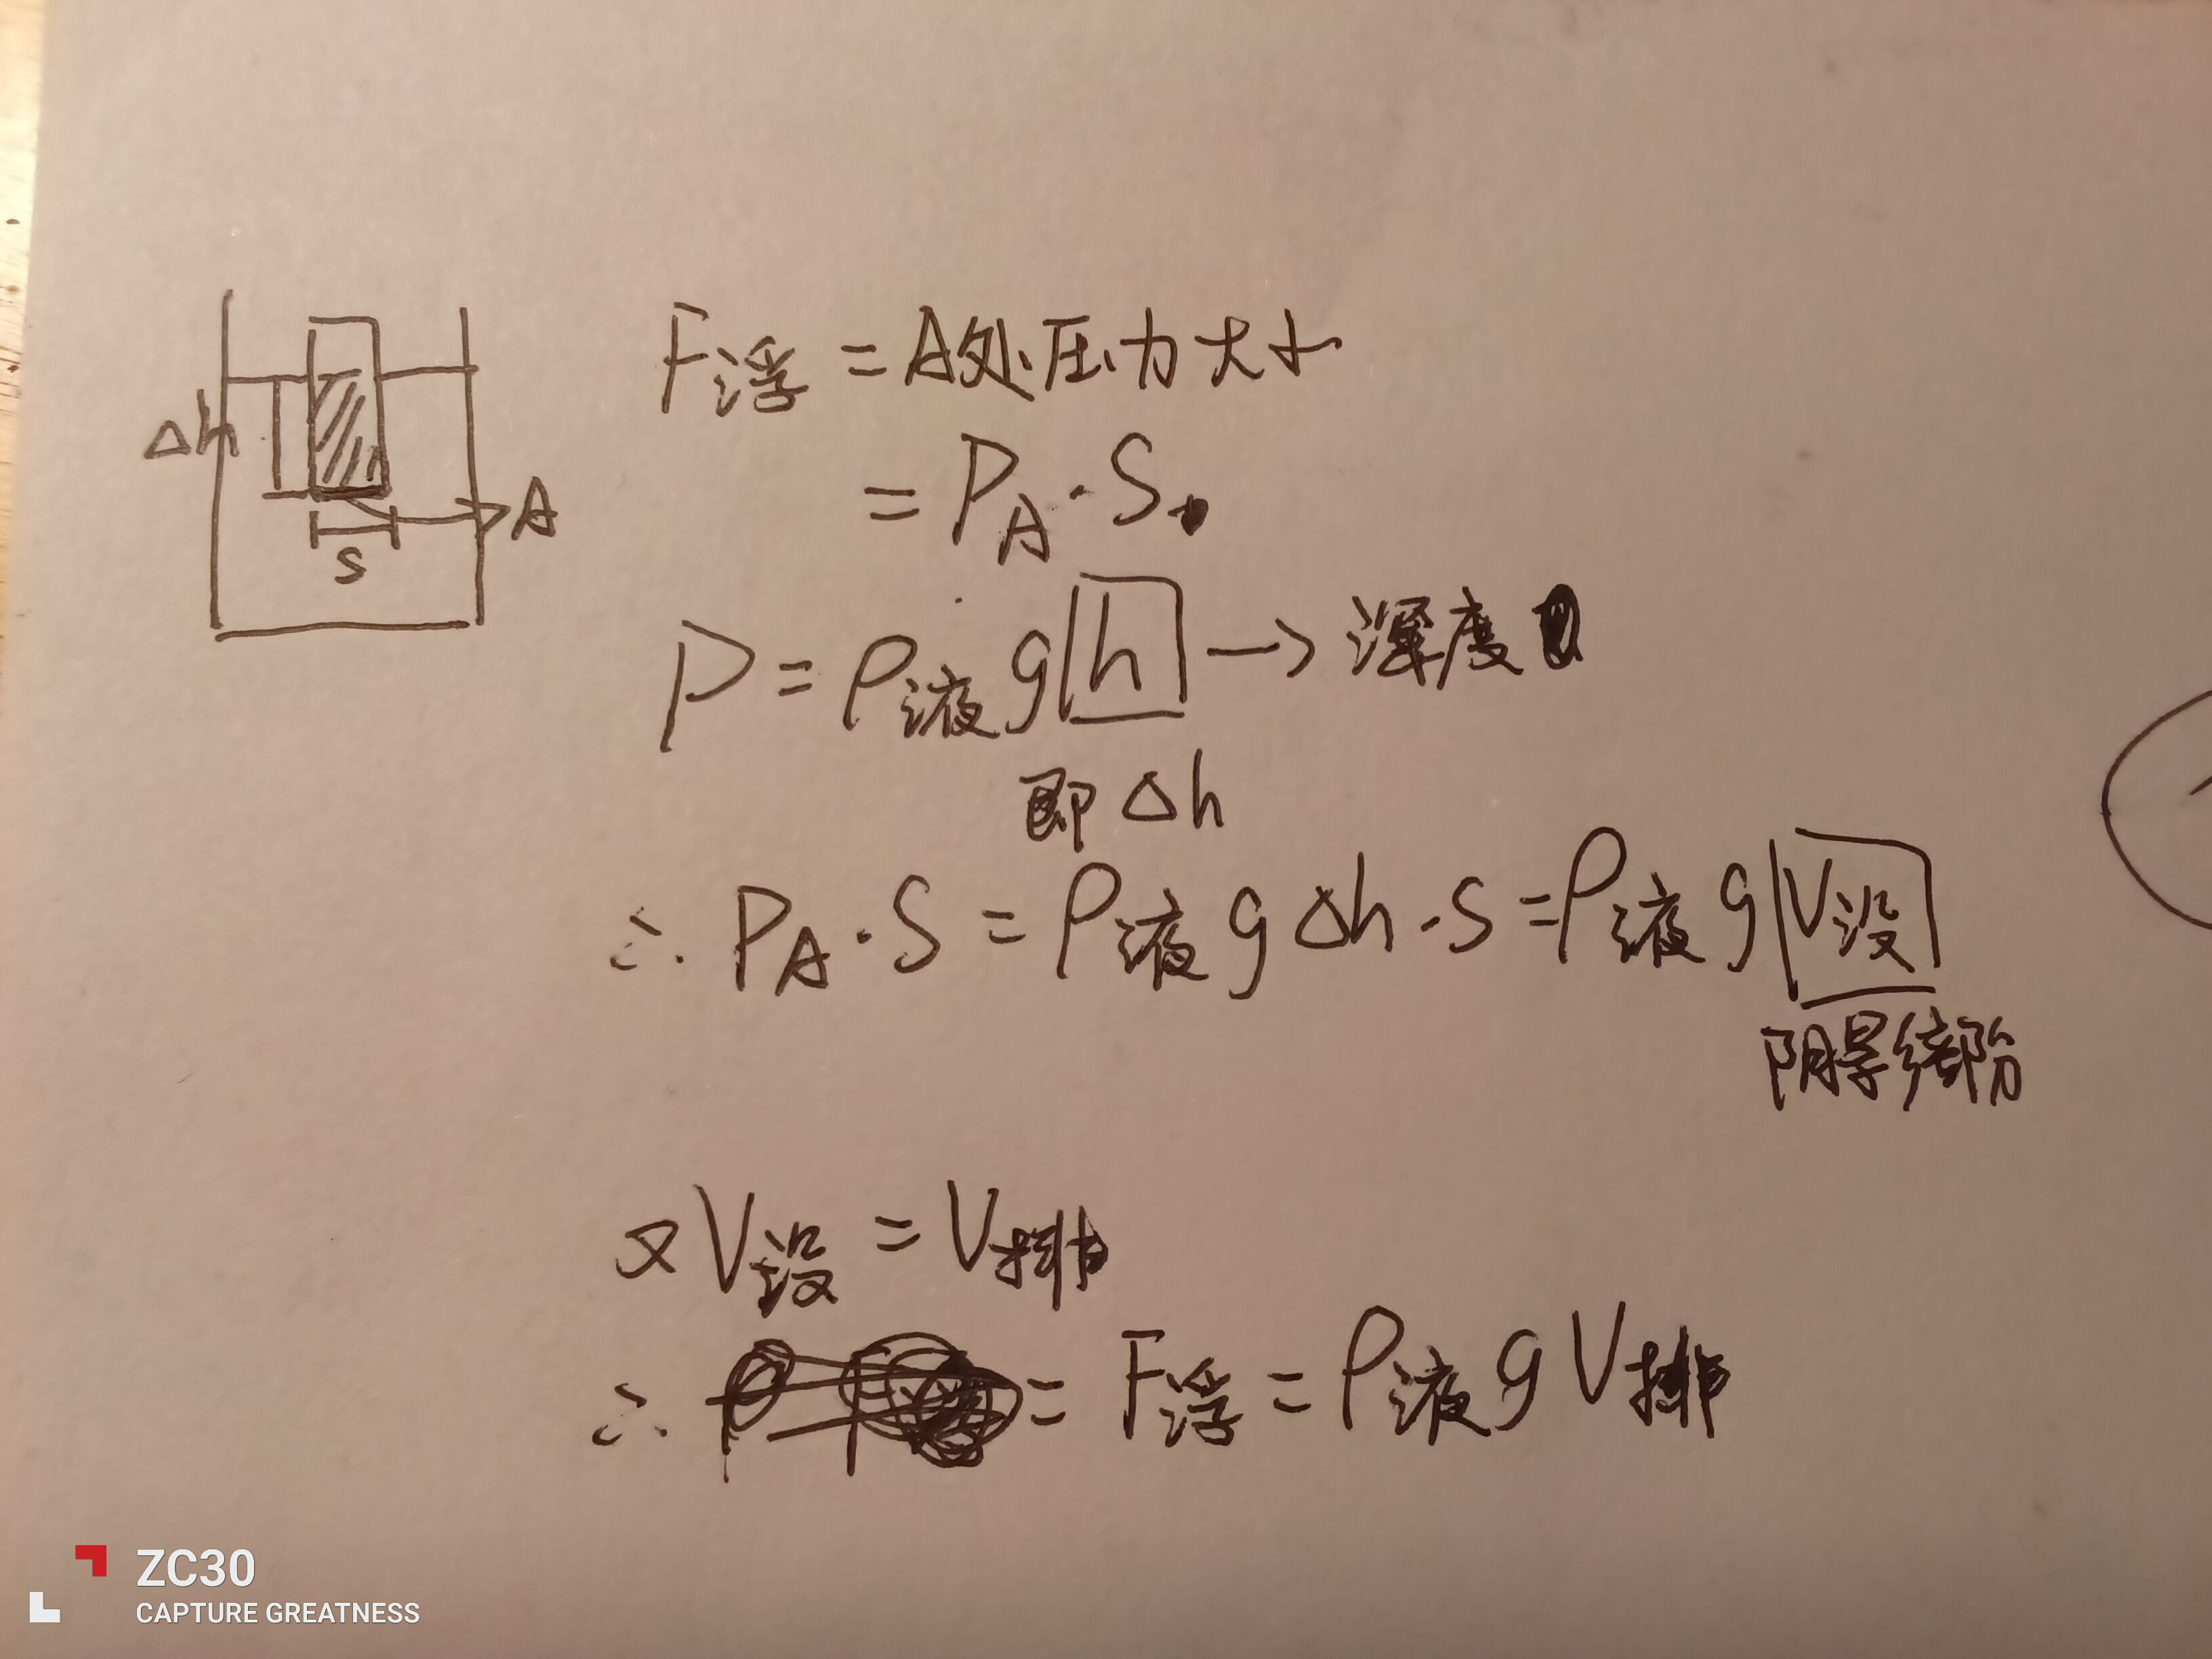 F浮 = A处压力大小
= PA·S
Δh
A
S
P = ρ液 g h → 深度
即 Δh
∴ PA·S = ρ液 g Δh·S = ρ液 g V没
阴影部分
又 V没 = V排
∴ = F浮 = ρ液 g V排
ZC30
CAPTURE GREATNESS